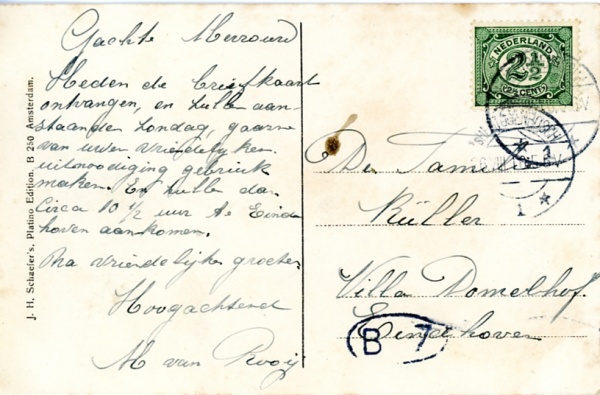 Geachte Mevrouw
Heden de briefkaart
ontvangen, en zulle aan-
staanden Zondag, gaarne
van uwer vriendelijken
uitnoodiging gebruik
maken. En zulle dan
Circa 10 1/2 uur te Eind
hoven aankomen.
Na vriendelijke groeten
Hoogachtend
M van Rooij
J. H. Schaefer's, Platino Edition. B 250 Amsterdam.
NEDERLAND
2½
2½ CENT
De Famil
Küller
Villa Domelhof.
Eindhoven
B 7